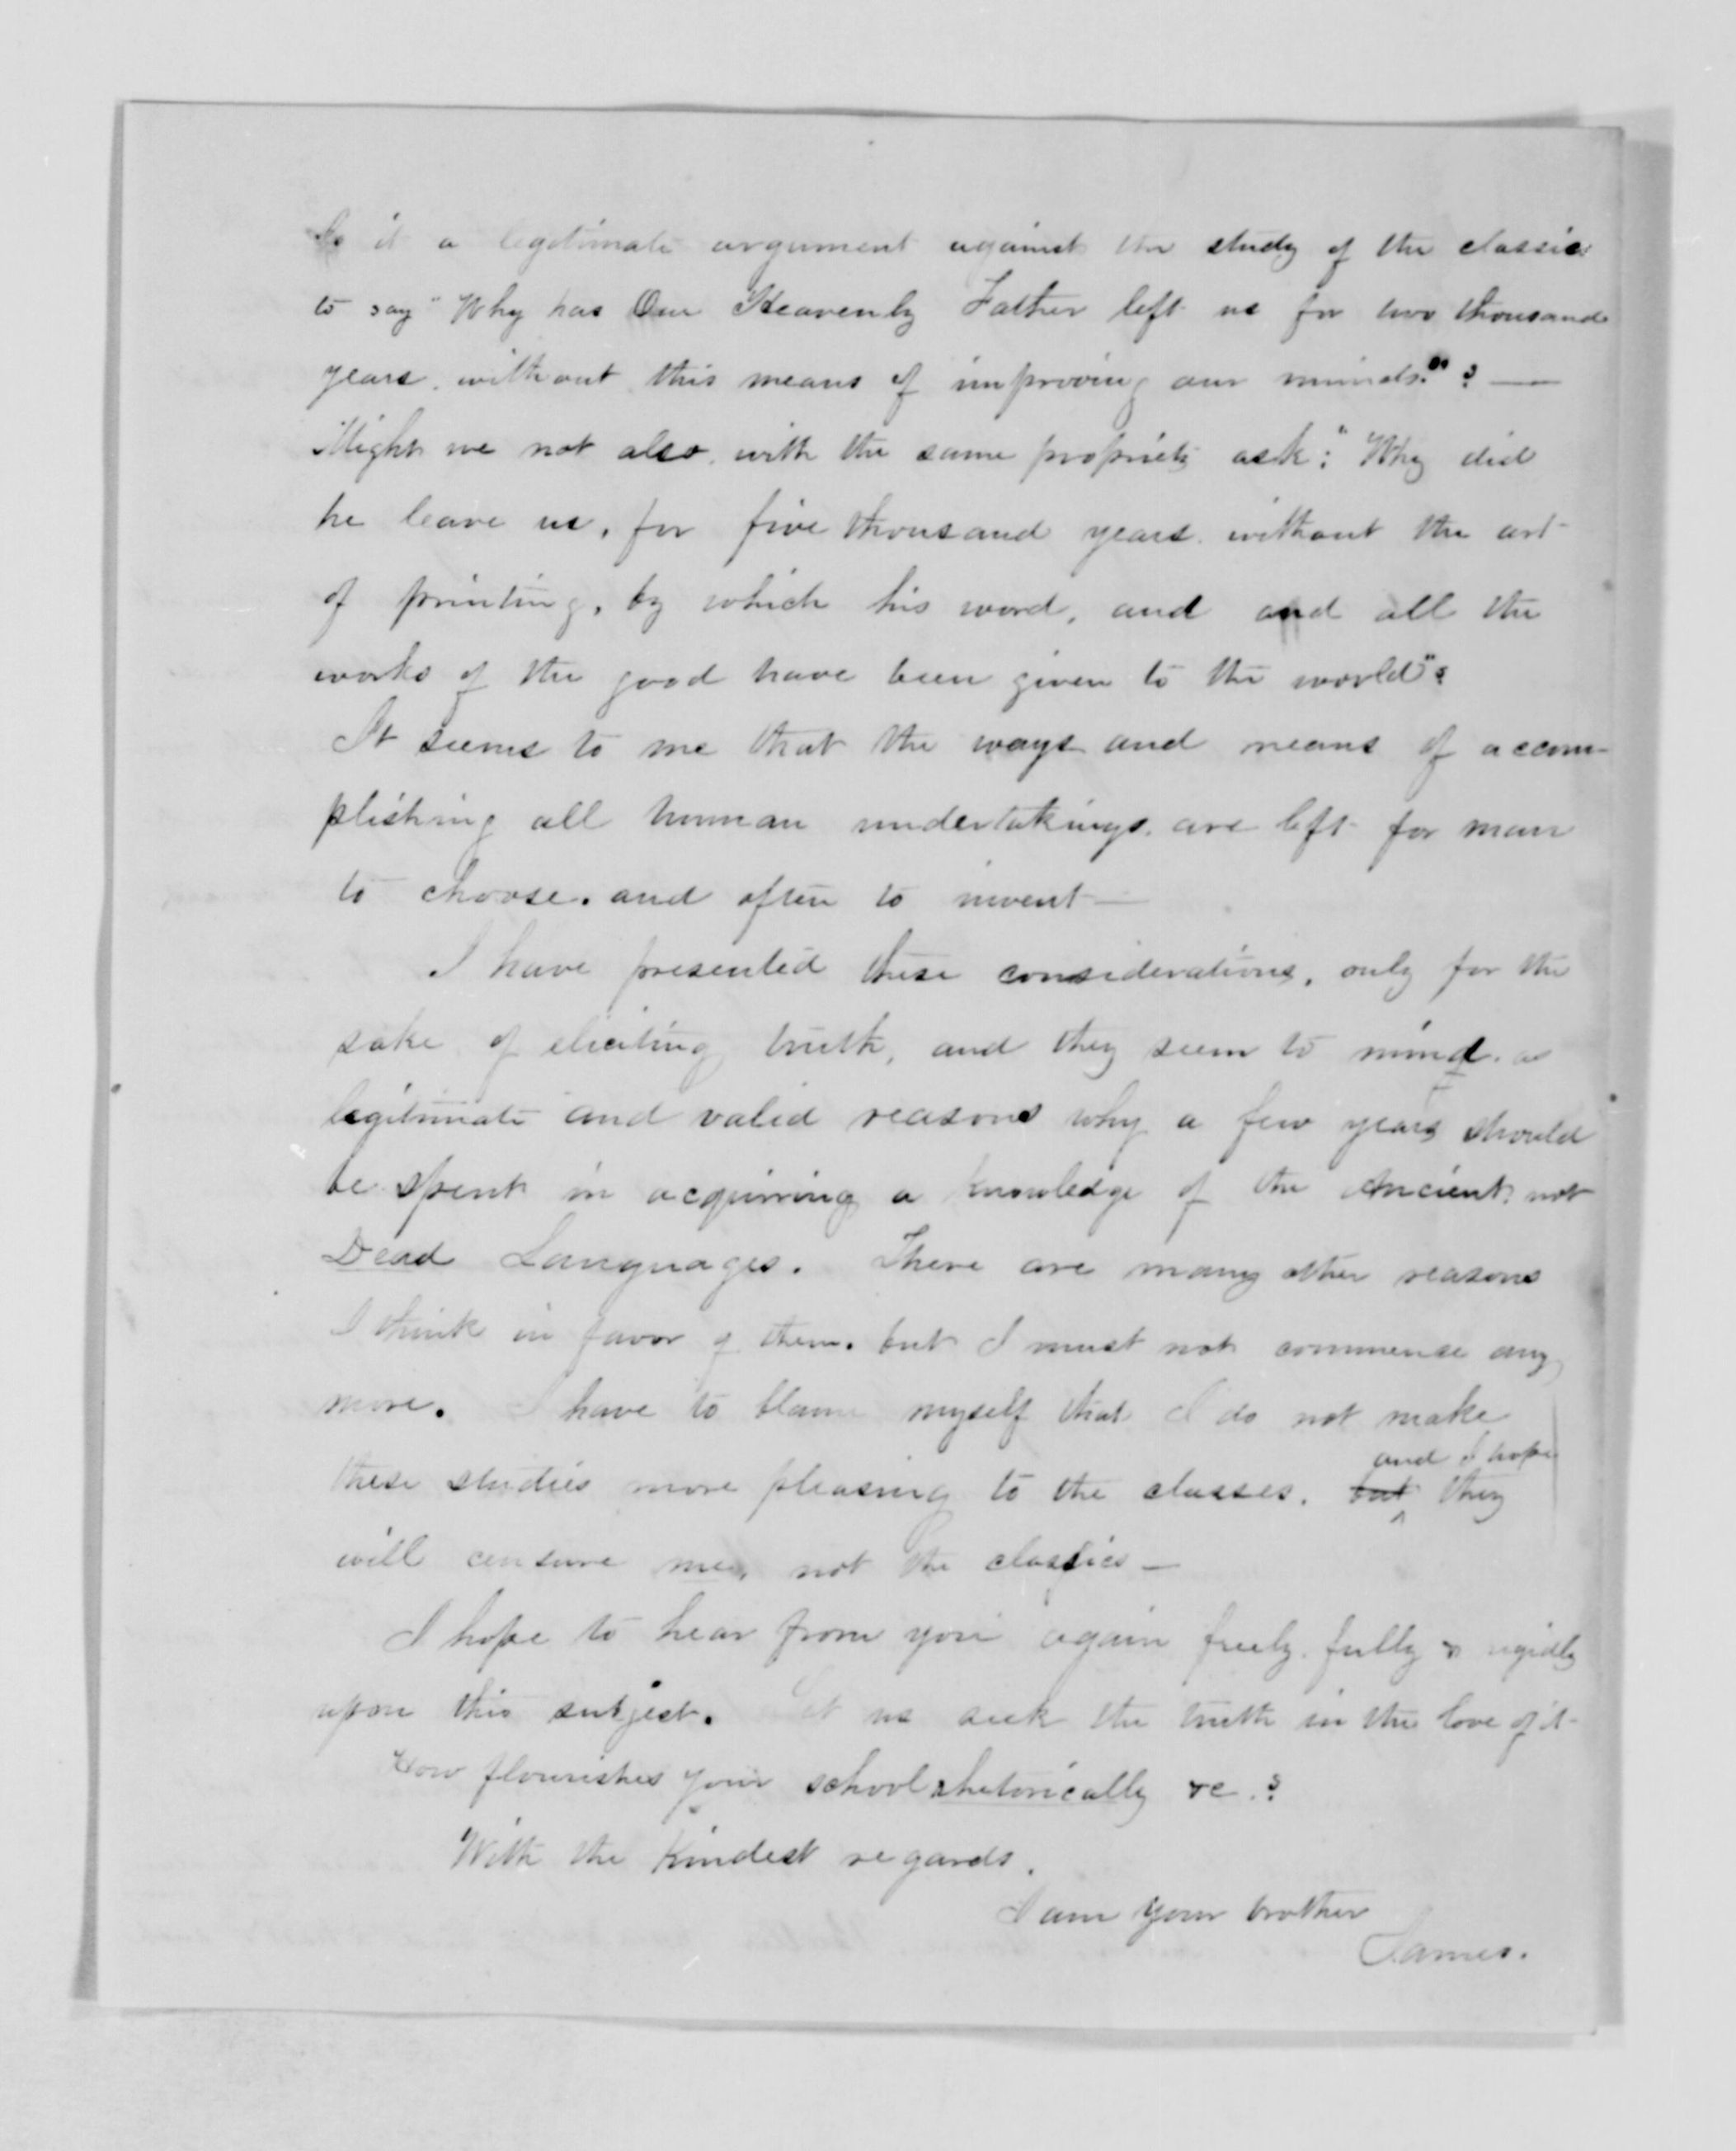 Is it a legitimate argument against the study of the classics
to say "Why has Our Heavenly Father left us for two thousand
years, without this means of improving our minds."? —
Might we not also, with the same propriety ask: "Why did
he leave us, for five thousand years, without the art
of printing, by which his word, and and all the
works of the good have been given to the world"?
It seems to me that the ways and means of accom-
plishing all human undertakings, are left for man
to choose, and often to invent —
I have presented these considerations, only for the
sake of eliciting truth, and they seem to mind, as
legitimate and valid reasons why a few years should
be spent in acquiring a knowledge of the Ancient, not
Dead Languages. There are many other reasons
I think in favor of them, but I must not commence any
more. I have to blame myself that I do not make
and I hope
these studies more pleasing to the classes, but they
will censure me, not the classics —
I hope to hear from you again freely, fully & rigidly
upon this subject. Let us seek the truth in the love of it -
How flourishes your school rhetorically &c.?
With the Kindest regards,
I am your brother
James.